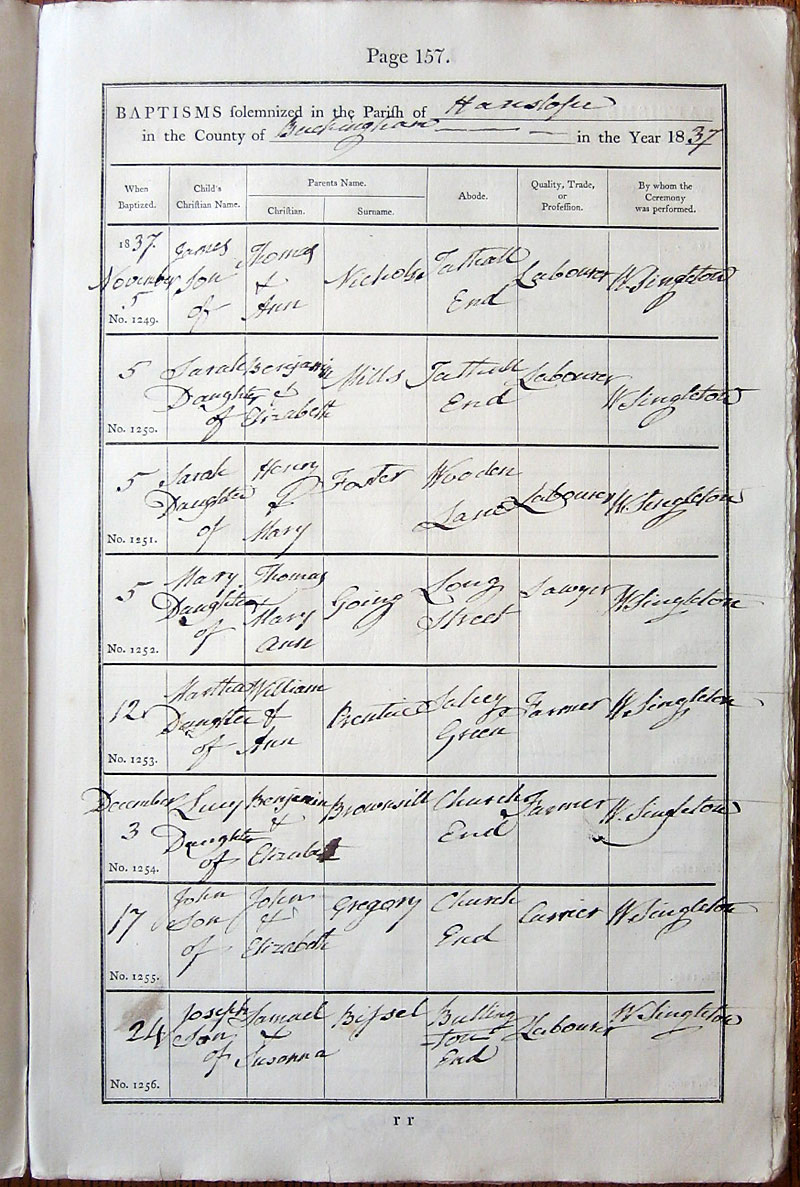 Page 157.
BAPTISMS solemnized in the Parish of Hanslope
in the County of Buckingham in the Year 1837
When Baptized. Child's Christian Name. Parents Name. Abode. Quality, Trade, or Profession. By whom the Ceremony was performed.
Christian. Surname.
1837. James Thomas
November Son & Nichols Tathall Labourer W. Singleton
5 of Ann End
No. 1249.
5 Sarah Benjamin Mills Tathall Labourer
Daughter & End W. Singleton
of Elizabeth
No. 1250.
5 Sarah Henry Foster Wooden
Daughter & Lane Labourer W. Singleton
of Mary
No. 1251.
5 Mary Thomas Going Long Sawyer W Singleton
Daughter & Mary Street
of Ann
No. 1252.
12 Martha William Prentice Salcey Farmer W. Singleton
Daughter & Green
of Ann
No. 1253.
December Lucy Benjamin Brownsill Church Farmer W. Singleton
3 Daughter & End
of Elizabeth
No. 1254.
17 John John Gregory Church Currier W. Singleton
Son & End
of Elizabeth
No. 1255.
24 Joseph Samuel Bissel Bulling Labourer W Singleton
Son & ton
of Susanna End
No. 1256.
r r